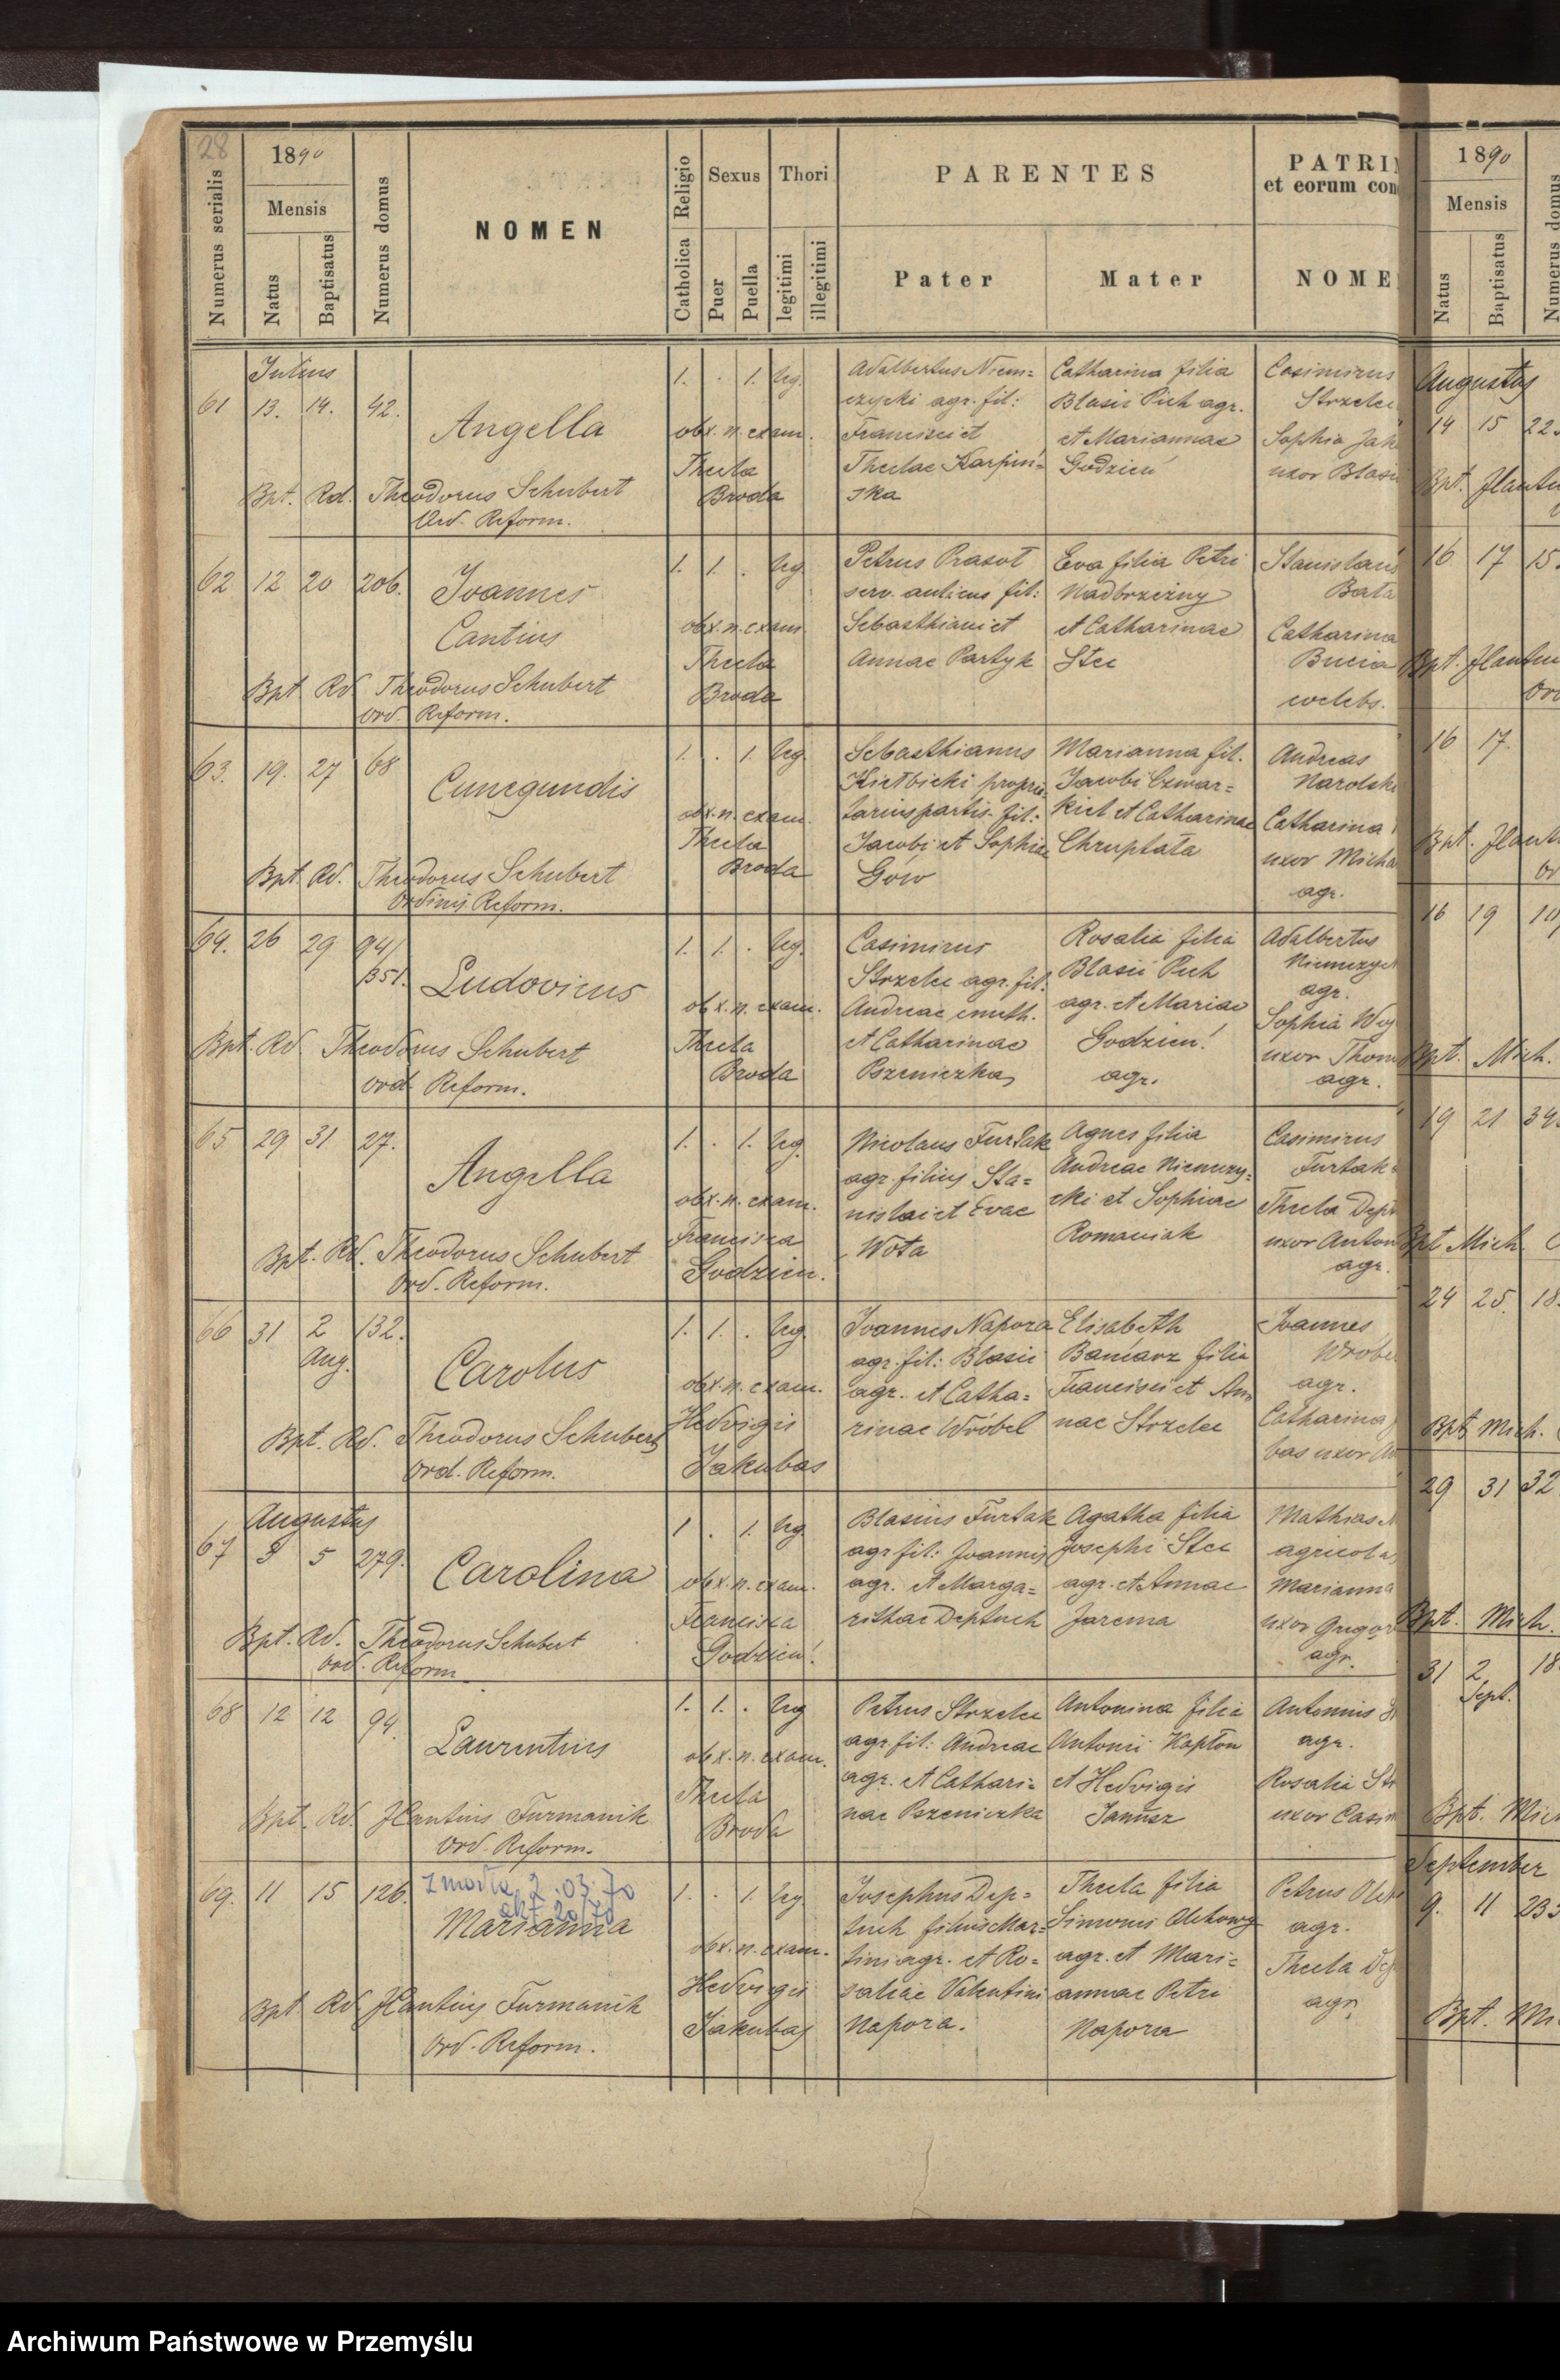 28
1890
Numerus serialis
Mensis
Natus
Baptisatus
Numerus domus
NOMEN
Religio
Catholica
Sexus
Puer
Puella
Thori
legitimi
illegitimi
PARENTES
Pater
Mater
PATRI
et eorum con
NOME
1890
Mensis
Natus
Baptisatus
Numerus domus
Julius
61 13. 14. 42. Angella 1. . 1. leg.
obx. n. exam.
Thecla
Broda
Bpt. Rd. Theodorus Schubert
Ord. Reform.
Adalbertus Niem=
czycki agr. fil:
Francisci et
Theclae Karpiń=
ska
Catharina filia
Blasii Pich agr.
et Mariannae
Godzień
Casimirus
Strzelec
Sophia Jak
uxor Blasii
62 12 20 206. Joannes
Cantius
1. 1. . leg
obx. n. exam.
Thecla
Broda
Bpt Rd Theodorus Schubert
Ord. Reform.
Petrus Prasoł
serv. aulicus fil:
Sebasthiani et
Annae Partyk
Eva filia Petri
Nadbrzeżny
et Catharinae
Stec
Stanislaus
Bata
Catharina
Bucia
coelebs.
63. 19. 27 68 Cunegundis 1. . 1. leg.
obx. n. exam.
Thecla
Broda
Bpt. Rd. Theodorus Schubert
Ordinis Reform.
Sebasthianus
Kiełbicki proprie=
tarius partis. fil:
Jacobi et Sophiae
Gów
Marianna fil.
Jacobi Czwar=
kiel et Catharinae
Chruptała
Andreas
Narolski
Catharina
uxor Micha
agr.
64. 26 29 94/
351. Ludovicus
1. 1. . leg.
obx. n. exam.
Thecla
Broda
Bpt. Rd. Theodorus Schubert
Ord. Reform.
Casimirus
Strzelec agr. fil.
Andreae emith.
et Catharinae
Pszeniczka
Rosalia filia
Blasii Pich
agr. et Mariae
Godzień
agr.
Adalbertus
Niemczyc
agr.
Sophia Woj
uxor Thom
agr.
65 29 31 27. Angella 1. . 1. leg.
obx. n. exam.
Francisca
Godzien.
Bpt. Rd. Theodorus Schubert
Ord. Reform.
Nicolaus Furtak
agr. filius Sta=
nislai et Evae
Wota
Agnes filia
Andreae Niemczy=
cki et Sophiae
Romaniak
Casimirus
Furtak
Thecla Dept
uxor Anton
agr.
66 31 2
Aug. 132. Carolus
1. 1. . leg.
obx. n. exam.
Hedvigis
Jakubas
Bpt. Rd. Theodorus Schubert
Ord. Reform.
Joannes Napora
agr. fil: Blasii
agr. et Catha=
rinae Wróbel
Elisabeth
Baniarz filia
Francisci et An
nae Strzelec
Joannes
Wróbel
agr.
Catharina
bas uxor An
Augustus
67 3 5 279. Carolina 1 . 1. leg.
obx. n. exam.
Francisca
Godzień
Bpt. Rd. Theodorus Schubert
Ord. Reform
Blasius Furtak
agr fil: Joannis
agr. et Marga=
rithae Deptuch
Agatha filia
Josephi Stec
agr. et Annae
Jarema
Mathias
agricola
Marianna
uxor Gregor
agr.
68 12 12 94. Laurentius 1. 1. . leg
obx. n. exam.
Thecla
Broda
Bpt. Rd. Hlantius Furmanik
Ord. Reform.
Petrus Strzelec
agr fil: Andreae
agr. et Cathari=
nae Pszeniczka
Antonina filia
Antonii Kapton
et Hedvigis
Janusz
Antonius
agr.
Rosalia Str
uxor Casim
69. 11 15 126. zmarła 2.03.70
akt 20/70
Marianna
1. . 1. leg.
obx. n. exam.
Hedvigis
Jakubas
Bpt Rd. Hlantius Furmanik
Ord. Reform.
Josephus Dep=
tuch filius Mar=
tini agr. et Ro=
saliae Valentini
Napora.
Thecla filia
Simonis Olchowy
agr. et Mari=
annae Petri
Napora
Petrus Olch
agr.
Thecla Dep
agr.
Augustus
14 15 22
Bpt.
16 17 15
Bpt.
16 17.
Bpt.
16 19 10
Bpt. Mich.
19 21 34.
Bpt Mich
24 25. 18
Bpt Mich.
29 31 32
Bpt. Mich.
31 2
Sept. 18
Bpt. Mich
September
9. 11 233
Bpt. Mi
Archiwum Państwowe w Przemyślu